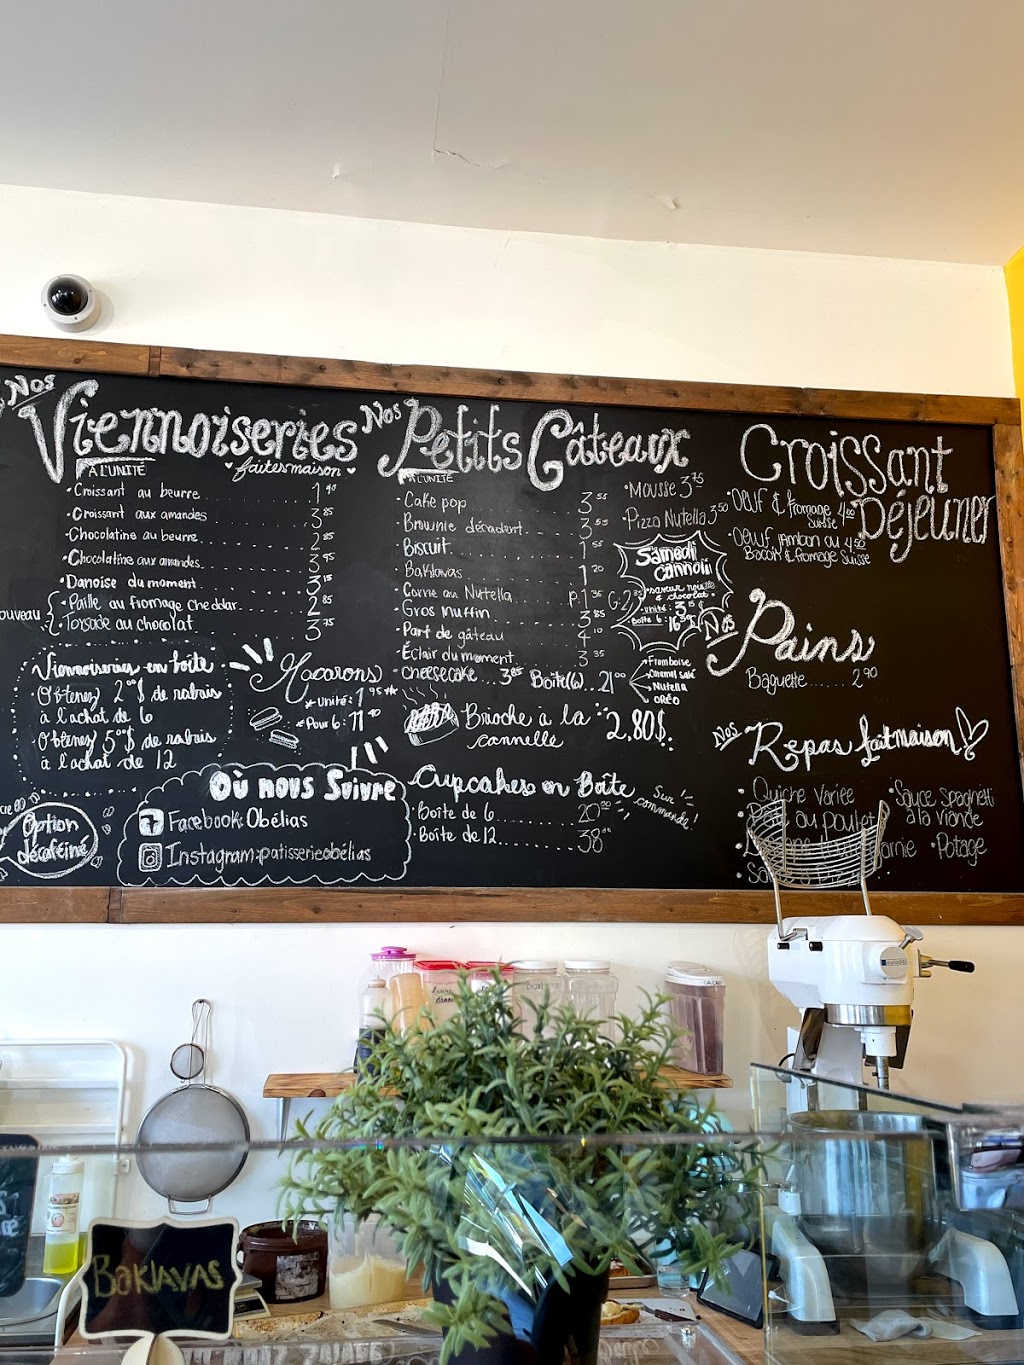 Nos
Viennoiseries
À L'UNITÉ
faites maison
• Croissant au beurre 1 40
• Croissant aux amandes 3 85
• Chocolatine au beurre 2 85
• Chocolatine aux amandes 3 95
• Danoise du moment 3 15
ouveau
• Paille au fromage cheddar 2 85
• Torsade au chocolat 3 75
Viennoiseries en boîte
Obtenez 2 00 $ de rabais
à l'achat de 6
Obtenez 5 00 $ de rabais
à l'achat de 12
Macarons
* Unité: 1 95 **
* Pour 6: 11 40
Où nous Suivre
Facebook: Obélias
Instagram: patisserieobélias
Option
décaféiné
Nos
Petits Gâteaux
À L'UNITÉ
• Cake pop 3 55
• Brownie décadent 3 55
• Biscuit 1 55
• Baklavas 1 20
• Carré au Nutella P. 1 35 G. 2 35
• Gros muffin 3 85
• Part de gâteau 4 10
• Éclair du moment 3 35
• Cheesecake 3 85 Boîte (6) 21 00
Framboise
Caramel salé
Nutella
ORÉO
• Mousse 3 75
• Pizza Nutella 3 50
Samedi
Cannoli
saveur noisette
& chocolat
unité: 3 15
Boîte 6: 16 95
Brioche à la
cannelle
2,80$
Cupcakes en Boîte
• Boîte de 6 20 00
• Boîte de 12 38 00
Sur
commande!
Croissant
Déjeuner
• Oeuf & fromage
suisse 4 00
• Oeuf, jambon ou 4 50
Bacon & fromage Suisse
Nos
Pains
Baguette 2 90
Nos
Repas fait maison!
• Quiche variée
au poulet
• Sauce spaghetti
à la viande
• Potage
BAKLAVAS